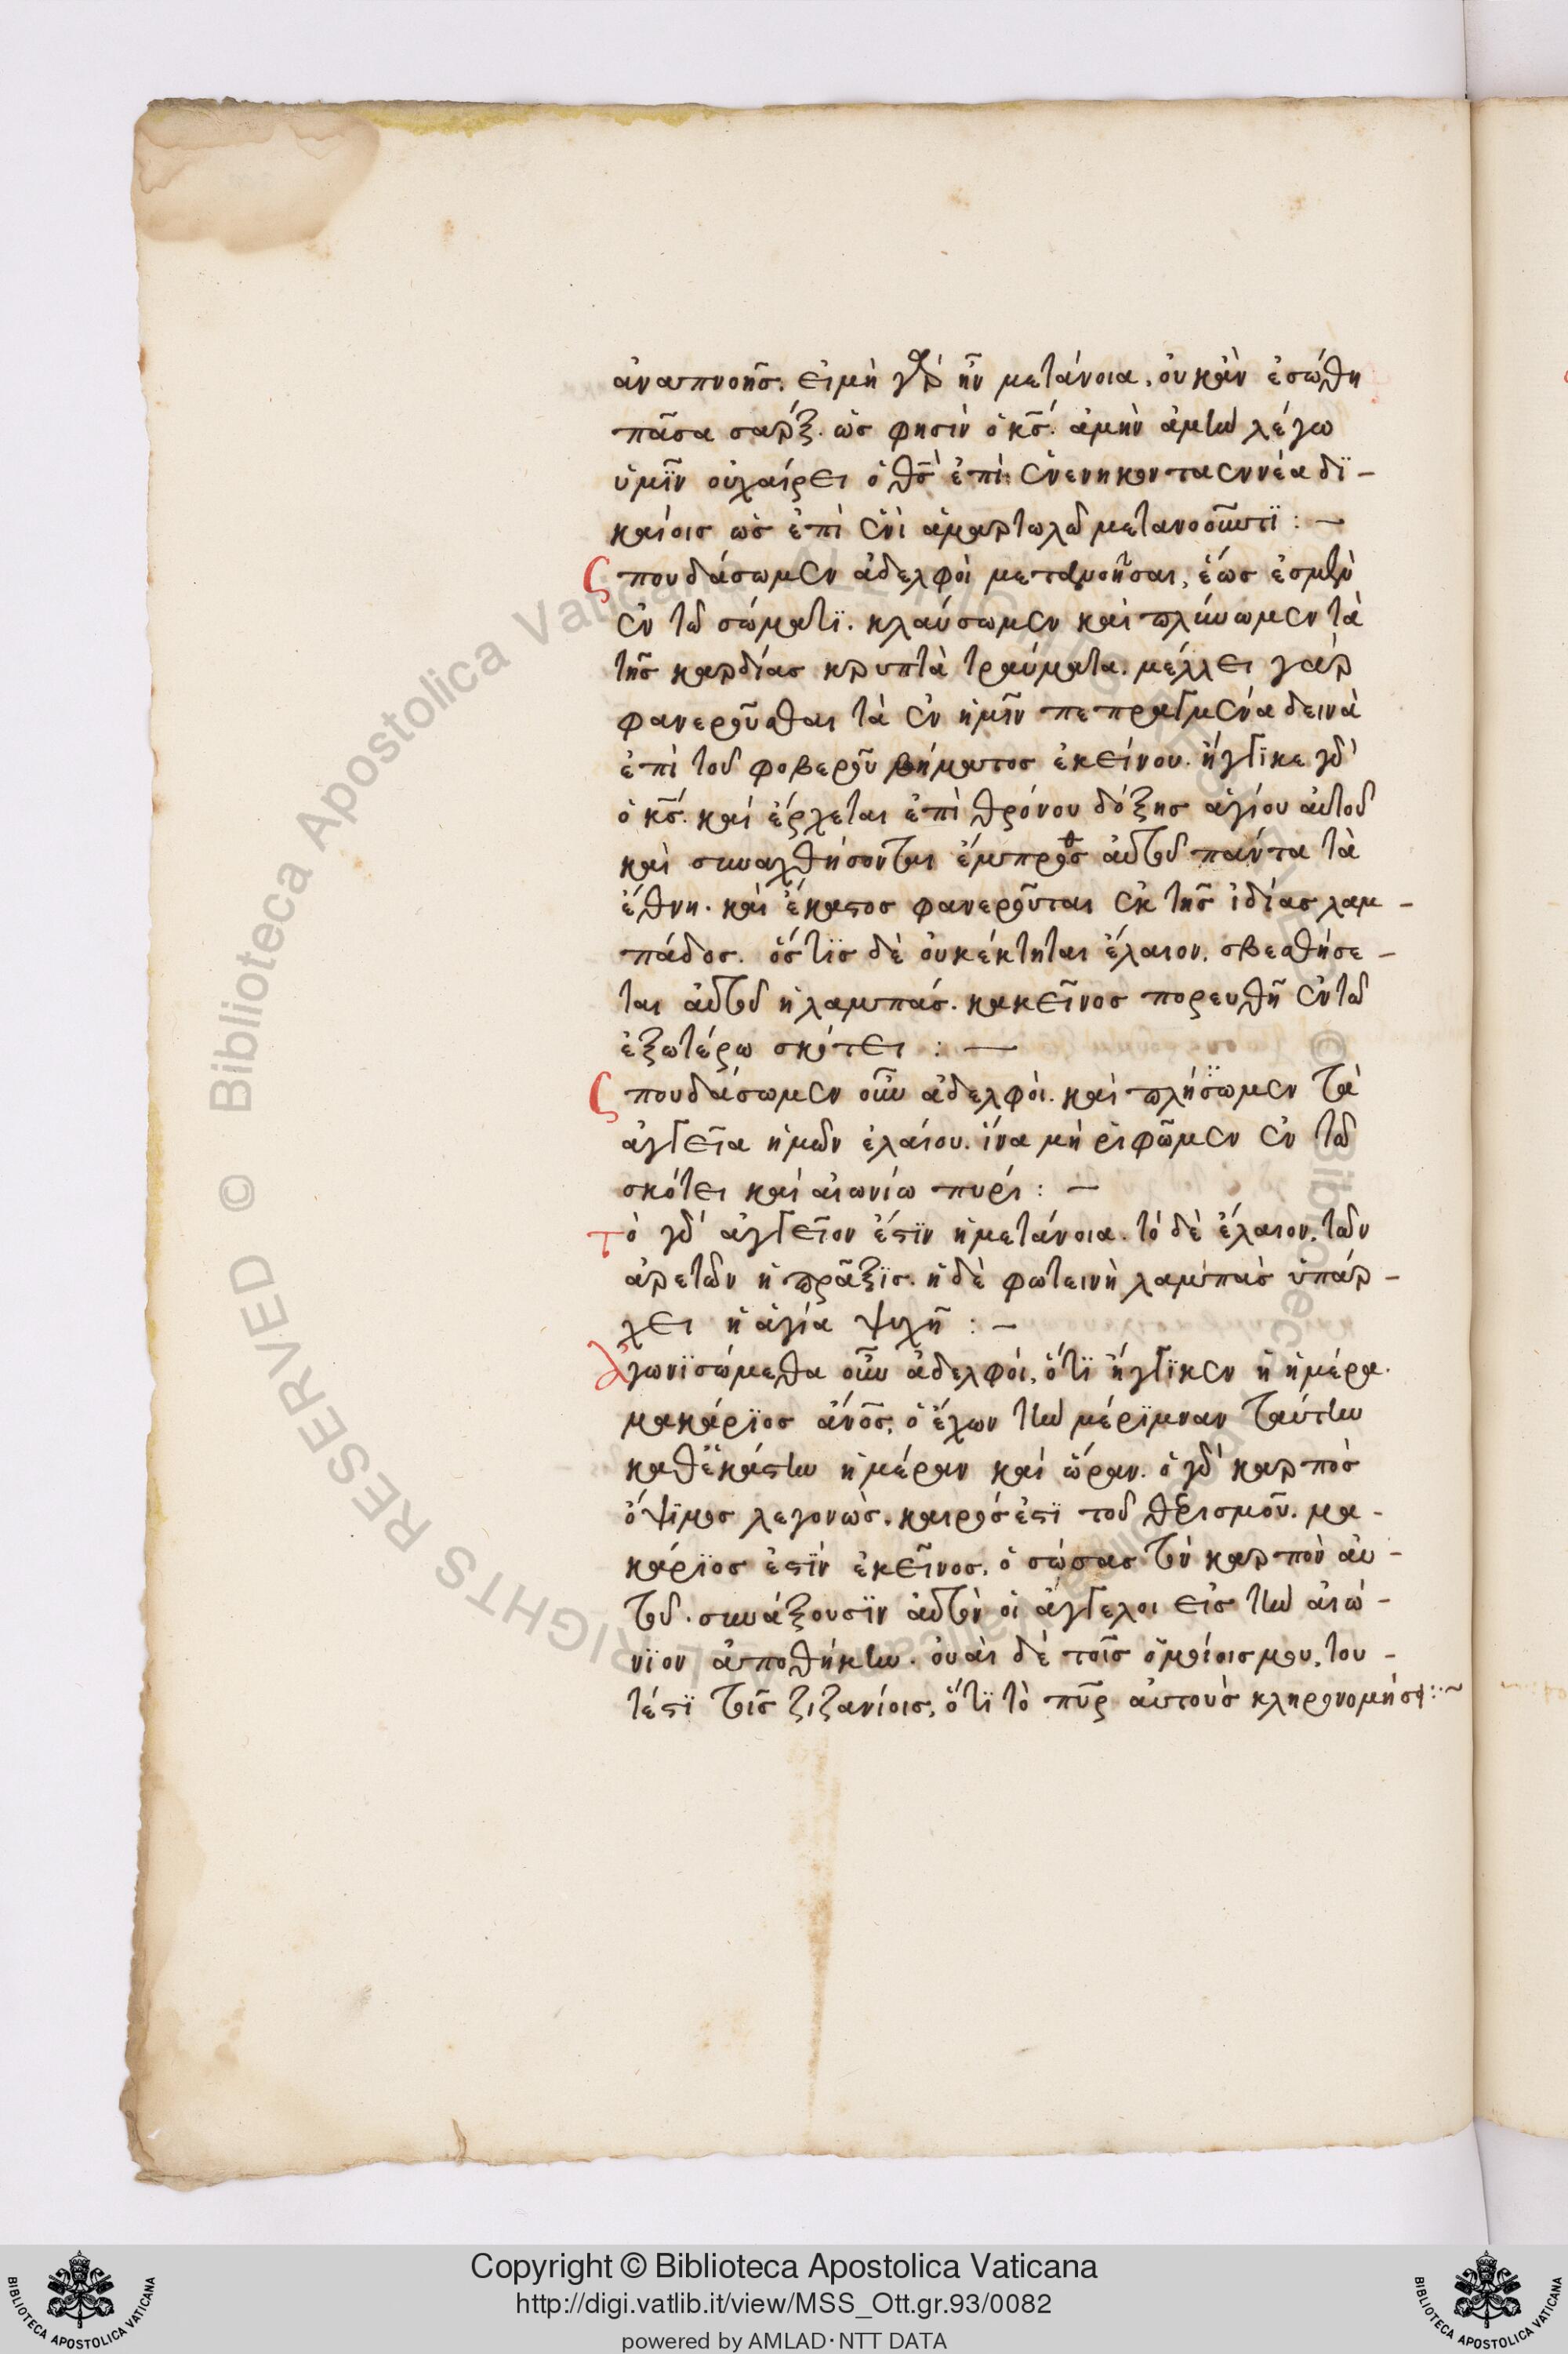 ἀναπνοῆσ. εἰμὴ γὰρ ἦν μετάνοια, οὐκἀν ἐσώθη
πᾶσα σαρξ. ὡσ φησὶν ὁ κσ̅. ἀμὴν ἀμὴν λέγω
ὑμῖν οὐχαίρει ὁ θσ̅ ἐπὶ ἐνενηκονταεννέα δϊ-
καίοισ ὡσ ἐπὶ ἑνὶ ἁμαρτωλῶ μετανοοῦντϊ : –
Σπουδάσωμεν ἀδελφοὶ μετανοῆσαι, ἕωσ ἐσμὲν
ἐν τῶ σώματϊ. κλαύσωμεν καὶ πλύνωμεν τὰ
τῆσ καρδίασ κρυπτὰ τραύματα. μέλλει γὰρ
φανεροῦσθαι τὰ ἐν ἡμῖν πεπραγμένα δεινὰ
ἐπὶ τοῦ φοβεροῦ βήματοσ ἐκείνου. ἤγγϊκε γὰρ
ὁ κσ̅. καὶ ἔρχεται ἐπὶ θρόνου δόξησ ἁγίου αὐτοῦ
καὶ συναχθήσονται ἔμπροσθεν αὐτοῦ πάντα τὰ
ἔθνη. καὶ ἕκαστοσ φανεροῦται ἐκ τῆσ ἰδίασ λαμ-
πάδοσ. ὅστϊσ δὲ οὐκέκτηται ἔλαιον, σβεσθήσε-
ται αὐτοῦ ἡ λαμπάσ. κακεῖνοσ πορευθῆ ἐν τῶ
ἐξωτέρω σκότει : –
Σπουδάσωμεν οὖν ἀδελφοὶ. καὶ πλήσωμεν τὰ
ἀγγεῖα ἡμῶν ἐλαίου. ἵνα μὴ ριφῶμεν ἐν τῶ
σκότει καὶ αἰωνίω πυρί : –
Τὸ γὰρ ἀγγεῖον ἔστϊν ἡ μετάνοια. τὸ δὲ ἔλαιον, τῶν
ἀρετῶν ἡ πρᾶξϊσ. ἡ δὲ φωτεινὴ λαμπὰσ ὑπάρ-
χει ἡ ἁγία ψυχῆ : –
Ἀγωνϊσώμεθα οὖν ἀδελφοί, ὅτϊ ἤγγϊκεν ἡ ἡμέρα.
μακάρϊοσ ἄνοσ̅, ὁ ἔχων τὴν μέρϊμναν ταύτην
καθἑκάστην ἡμέραν καὶ ὥραν. ὁ γὰρ καρπὸσ
ὄψϊμοσ γεγονὼσ. καιρόσ ἐστϊ τοῦ θερισμοῦ. μα-
κάρϊοσ ἐστϊν ἐκεῖνοσ, ὁ σώσασ τὸν καρπὸν αὐ-
τοῦ. συνάξουσϊν αὐτὸν οἱ ἄγγελοι εἰσ τὴν αἰώ-
νϊον ἀποθήκην. οὐαὶ δὲ τοῖσ ὁμοίοισ μου, του-
τέστϊ τοῖσ ζιζανίοισ, ὅτϊ τὸ πῦρ αὐτοὺσ κληρονομήσει : ~
Copyright © Biblioteca Apostolica Vaticana
http://digi.vatlib.it/view/MSS_Ott.gr.93/0082
powered by AMLAD·NTT DATA
BIBLIOTECA APOSTOLICA VATICANA
BIBLIOTECA APOSTOLICA VATICANA
© Biblioteca Apostolica Vaticana ALL RIGHTS RESERVED